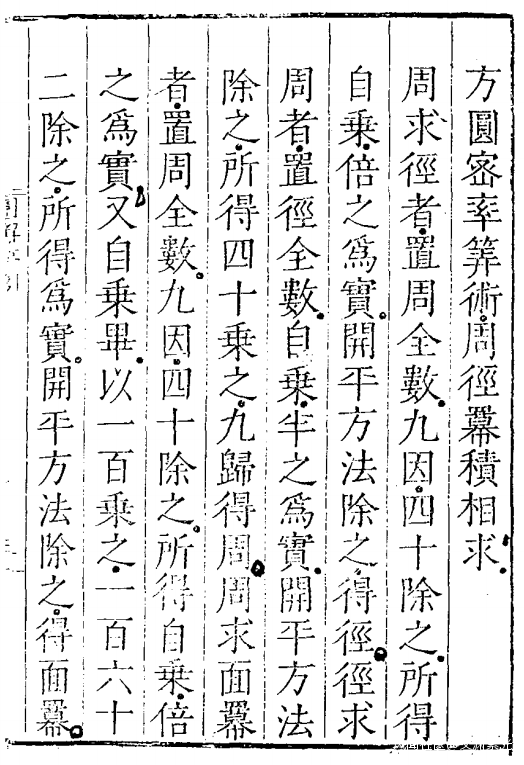 方圓密率筭術周徑羃積相求
周求徑者置周全數九因四十除之所得
自乗倍之爲實開平方法除之得徑徑求
周者置徑全數自乗半之爲實開平方法
除之所得四十乗之九歸得周周求面羃
者置周全數九因四十除之所得自乗倍
之爲實又自乗畢以一百乗之一百六十
二除之所得爲實開平方法除之得面羃